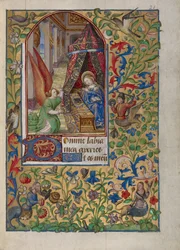 Domine labia
mea aperies
et os meu